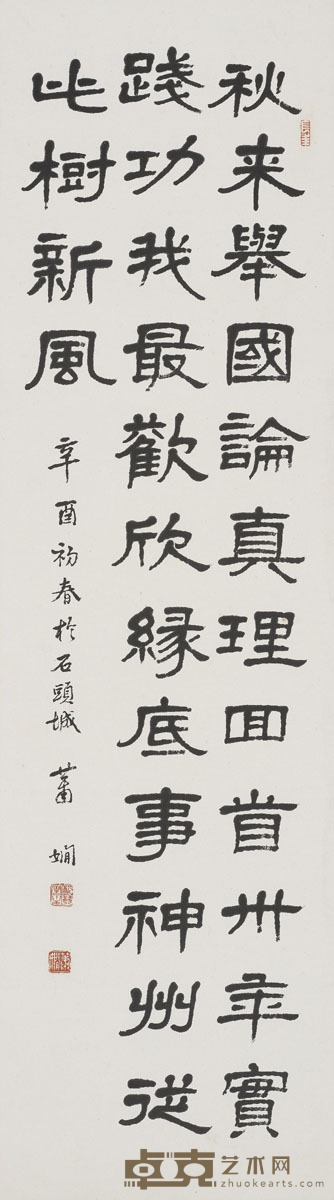 秋来舉國論真理回首卅年實
踐功我最歡欣緣底事神州從
此樹新風
辛酉初春於石頭城 蕭嫻
卓克艺术网
www.zhuokearts.com